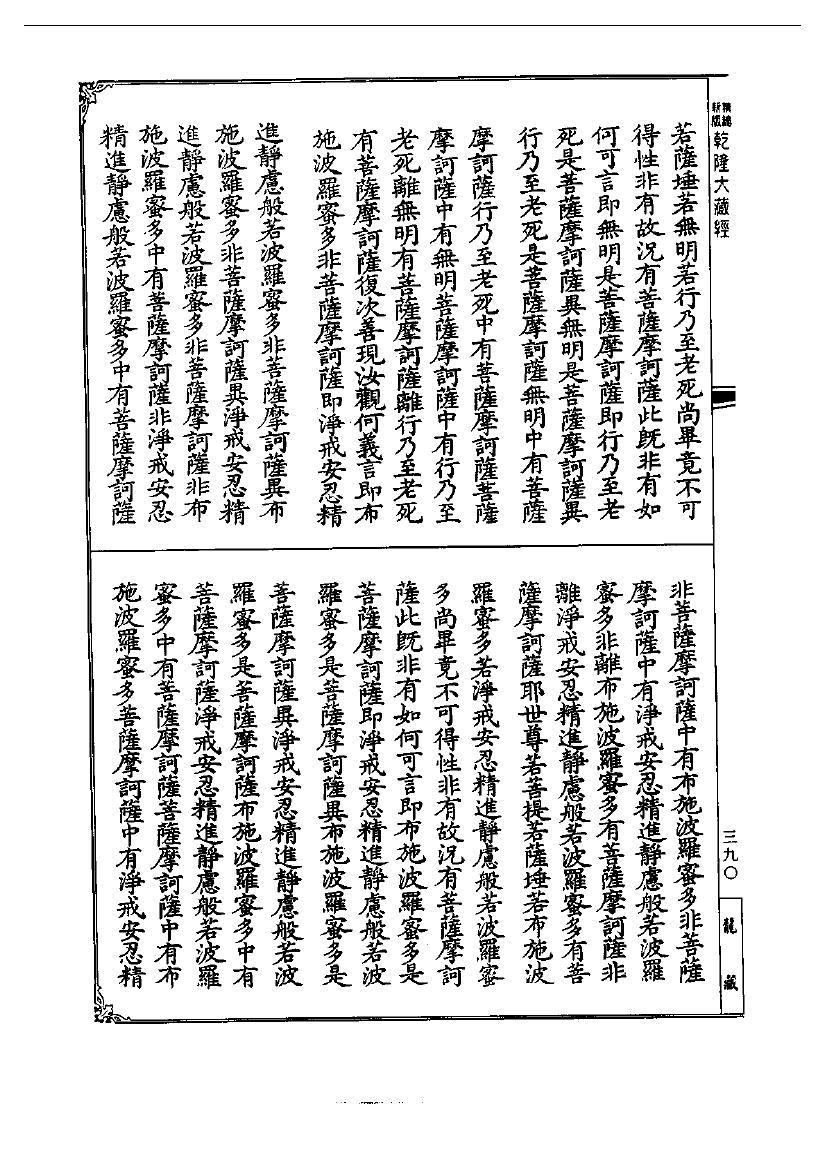 新編縮版乾隆大藏經
若薩埵若無明若行乃至老死尚畢竟不可
得性非有故況有菩薩摩訶薩此既非有如
何可言即無明是菩薩摩訶薩即行乃至老
死是菩薩摩訶薩異無明是菩薩摩訶薩異
行乃至老死是菩薩摩訶薩無明中有菩薩
摩訶薩行乃至老死中有菩薩摩訶薩菩薩
摩訶薩中有無明菩薩摩訶薩中有行乃至
老死離無明有菩薩摩訶薩離行乃至老死
有菩薩摩訶薩復次善現汝觀何義言即布
施波羅蜜多非菩薩摩訶薩即淨戒安忍精
進靜慮般若波羅蜜多非菩薩摩訶薩異布
施波羅蜜多非菩薩摩訶薩異淨戒安忍精
進靜慮般若波羅蜜多非菩薩摩訶薩非布
施波羅蜜多中有菩薩摩訶薩非淨戒安忍
精進靜慮般若波羅蜜多中有菩薩摩訶薩
非菩薩摩訶薩中有布施波羅蜜多非菩薩
摩訶薩中有淨戒安忍精進靜慮般若波羅
蜜多非離布施波羅蜜多有菩薩摩訶薩非
離淨戒安忍精進靜慮般若波羅蜜多有菩
薩摩訶薩耶世尊若菩提若薩埵若布施波
羅蜜多若淨戒安忍精進靜慮般若波羅蜜
多尚畢竟不可得性非有故況有菩薩摩訶
薩此既非有如何可言即布施波羅蜜多是
菩薩摩訶薩即淨戒安忍精進靜慮般若波
羅蜜多是菩薩摩訶薩異布施波羅蜜多是
菩薩摩訶薩異淨戒安忍精進靜慮般若波
羅蜜多是菩薩摩訶薩布施波羅蜜多中有
菩薩摩訶薩淨戒安忍精進靜慮般若波羅
蜜多中有菩薩摩訶薩菩薩摩訶薩中有布
施波羅蜜多菩薩摩訶薩中有淨戒安忍精
三九〇
龍藏